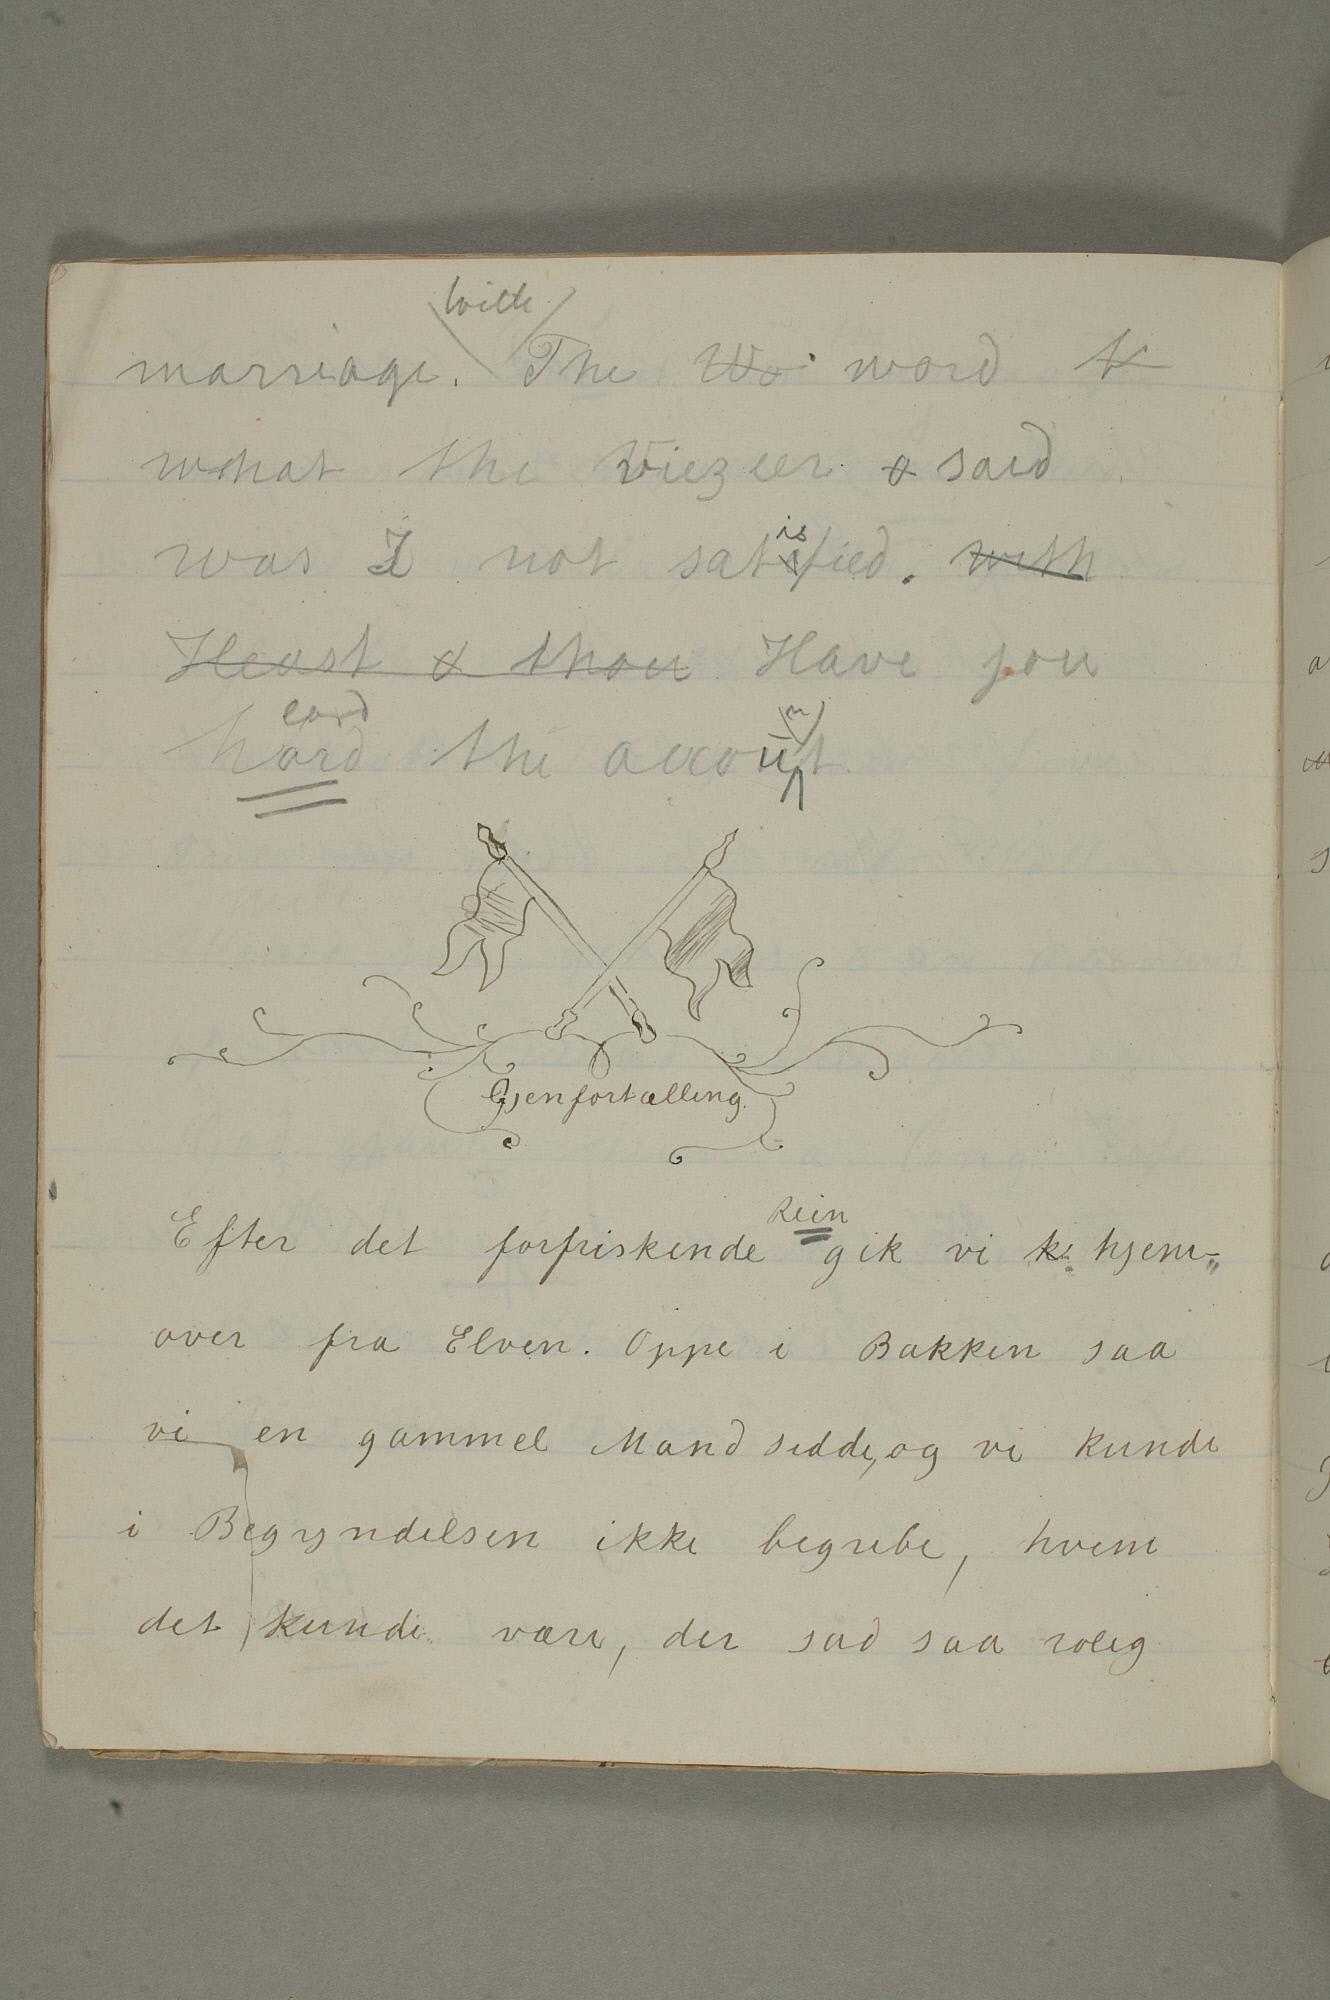 With
marriage. The Wo word t
what the Viezeer & said
was I not satisfied. with
is
Heast & thou Have you
eard
n
hard the account
Gjenfortælling.
Rein
Efter det forfriskende gik vi k. hjem-
over fra Elven. Oppe i Bakken saa
vi en gammel Mand sidde, og vi kunde
i Begyndelsen ikke begribe, hvem
det kunde være, der sad saa rolig